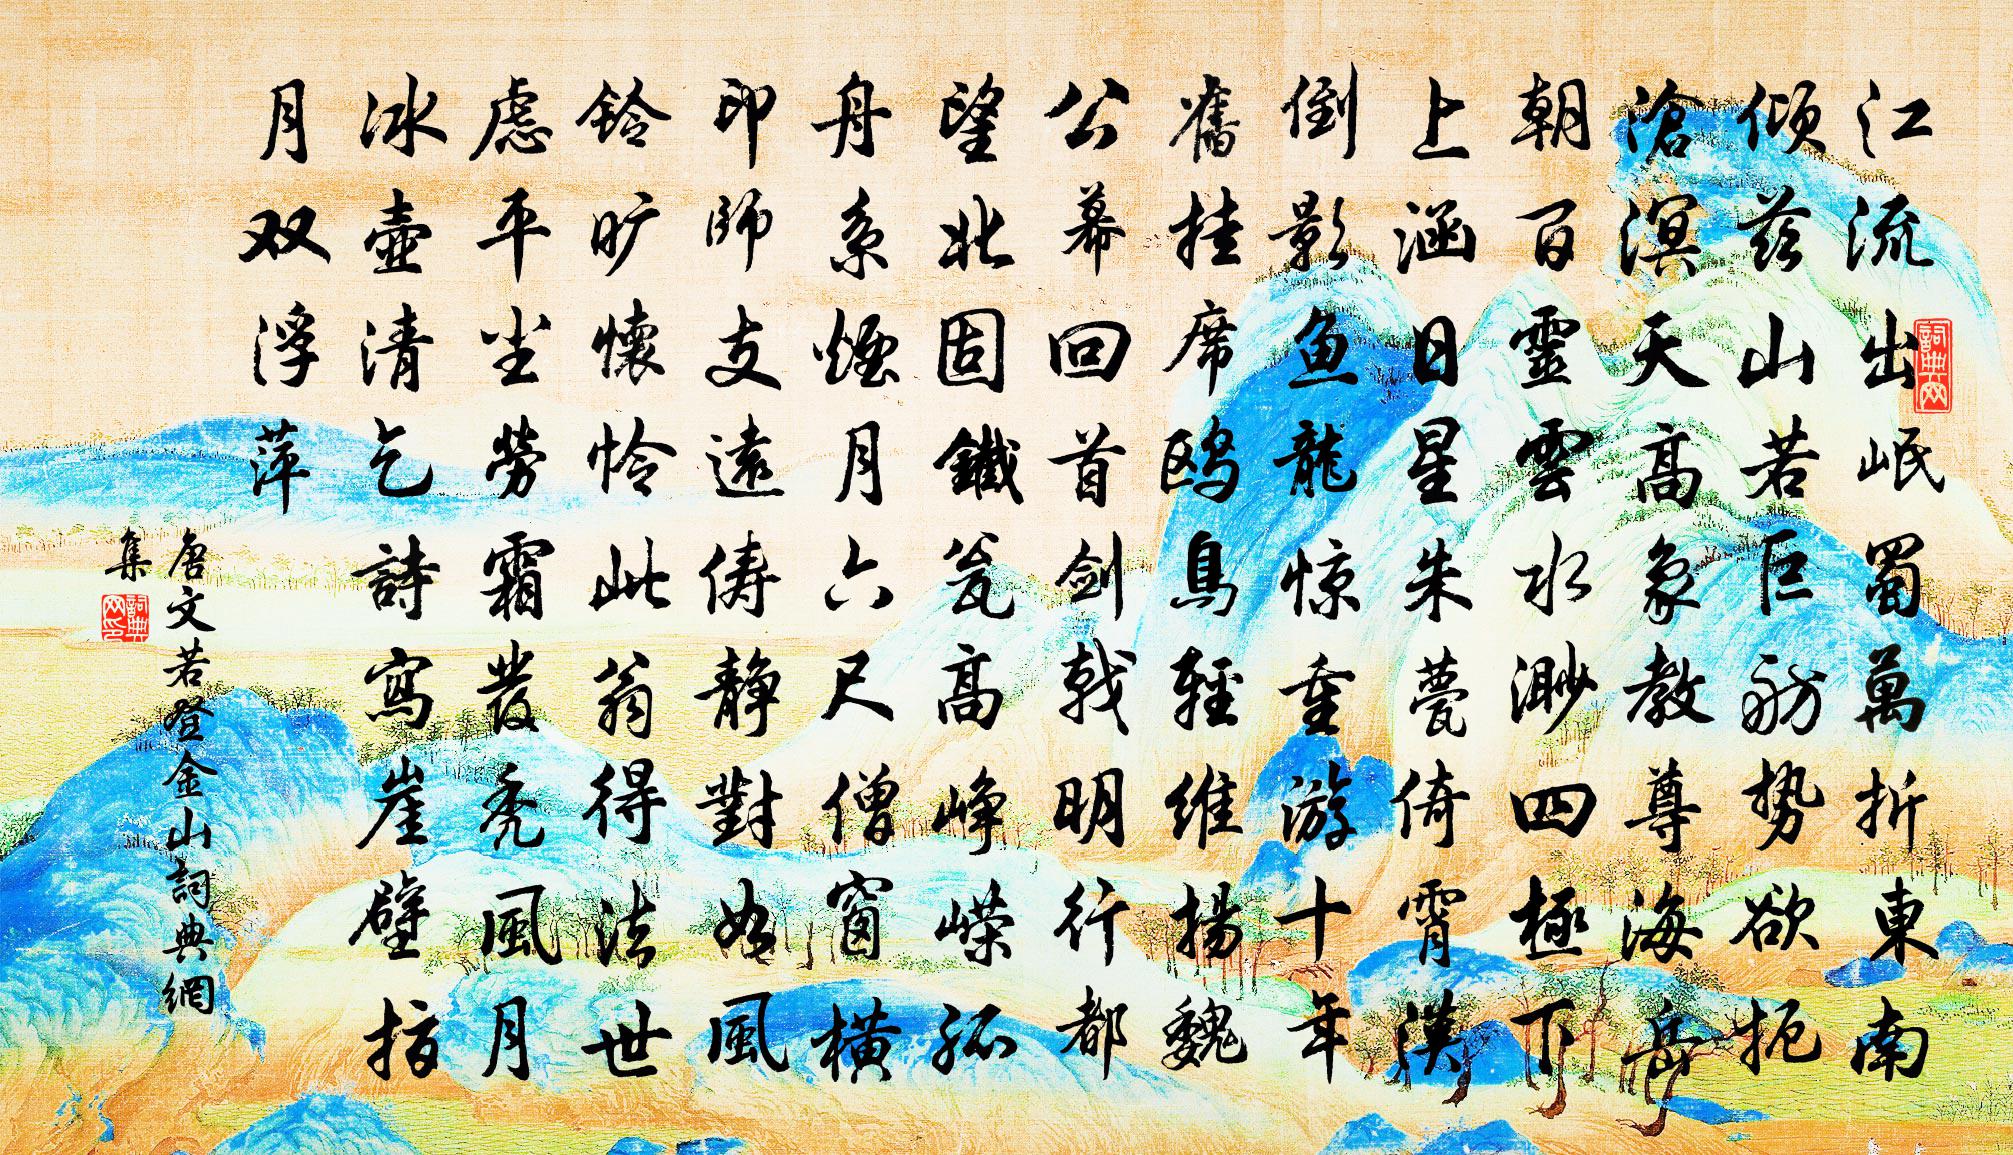 江流出岷蜀萬折東南
傾茲山若巨舫势欲扼
滄溟天高象教尊海岳
朝百靈雲水渺四極下
上涵日星朱甍倚霄漢
倒影魚龍惊重游十年
舊挂席鸥鳥輕維揚魏
公幕回首剑戟明行都
望北固鐵瓮高峥嵘孤
舟系煙月六尺僧窗横
印師支遠俦静對如風
鈴旷懷怜此翁得法世
慮平尘勞霜發秃風月
冰壺清乞詩寫崖壁指
月双浮萍
唐文若登金山詞典網
集
詞典网
詞典网印